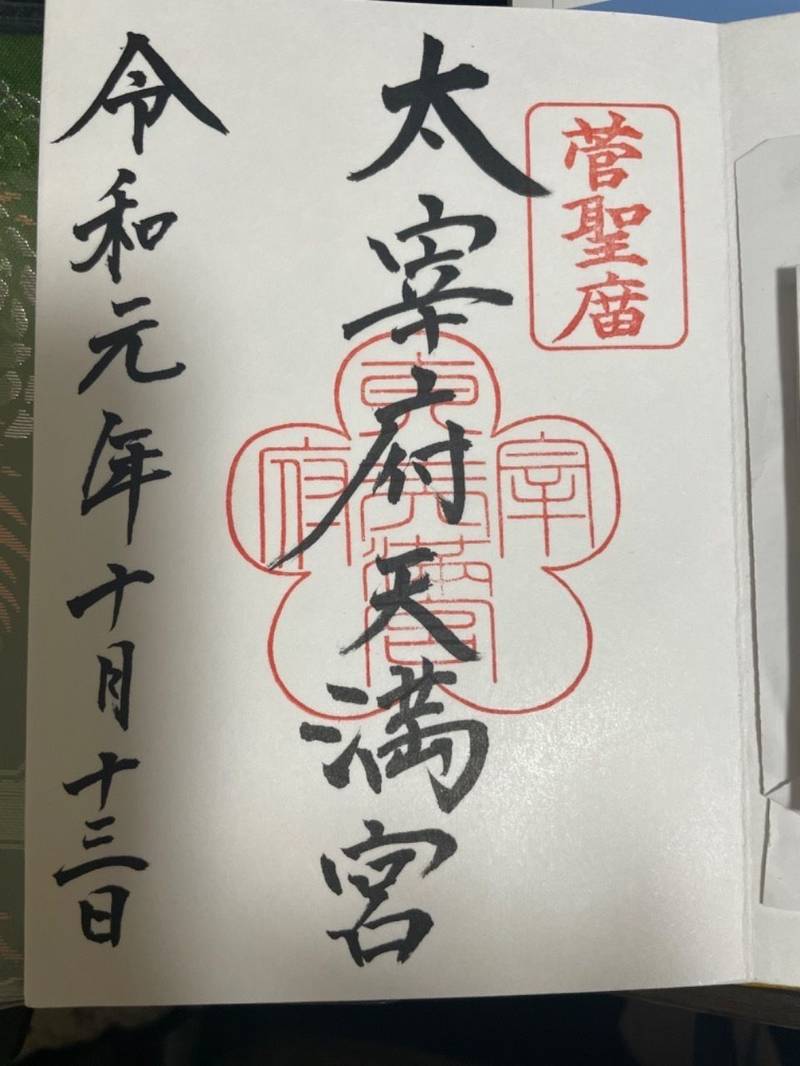 菅聖庿
太宰府天満宮
宰
府
令和元年十月十三日